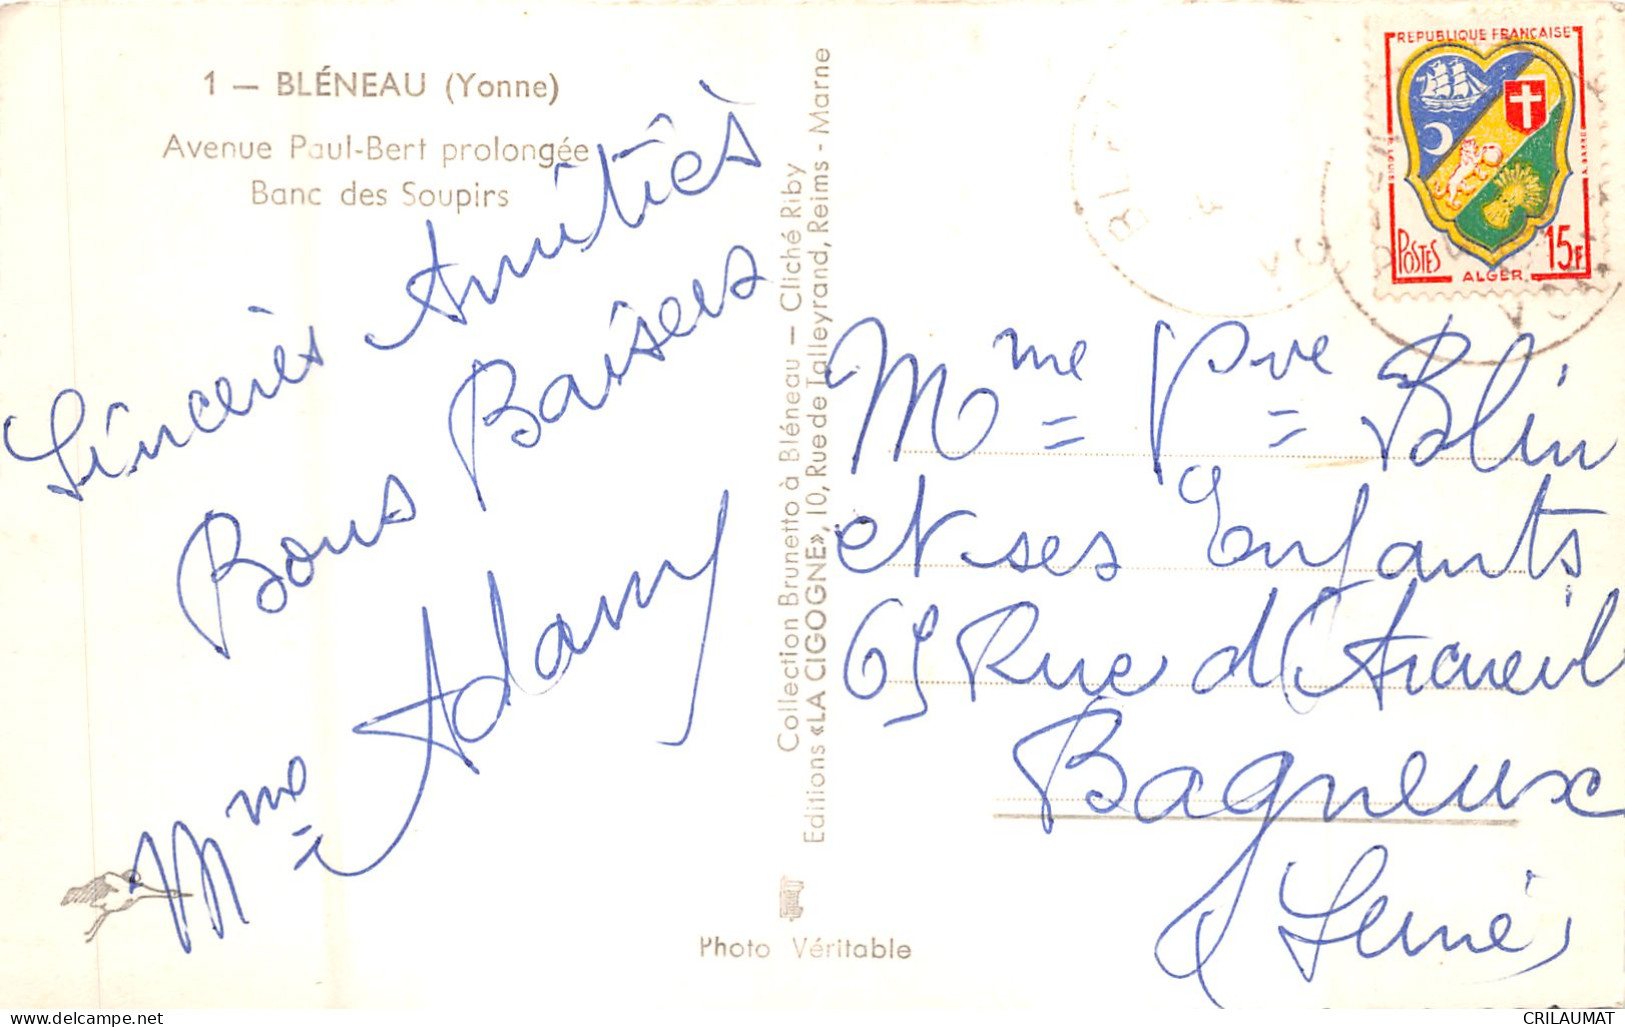 1 — BLÉNEAU (Yonne)
Avenue Paul-Bert prolongée
Banc des Soupirs
Sincères Amitiés
Bons Baisers
Mme Adamy
Collection Brunetto à Bléneau — Cliché Riby
Editions «LA CIGOGNE», 10, Rue de Talleyrand, Reims - Marne
Photo Véritable
REPUBLIQUE FRANÇAISE
POSTES
ALGER
15F
Mme Vve Blin
et ses Enfants
65 Rue d'Arcueil
Bagneux
Seine
CRILAUMAT